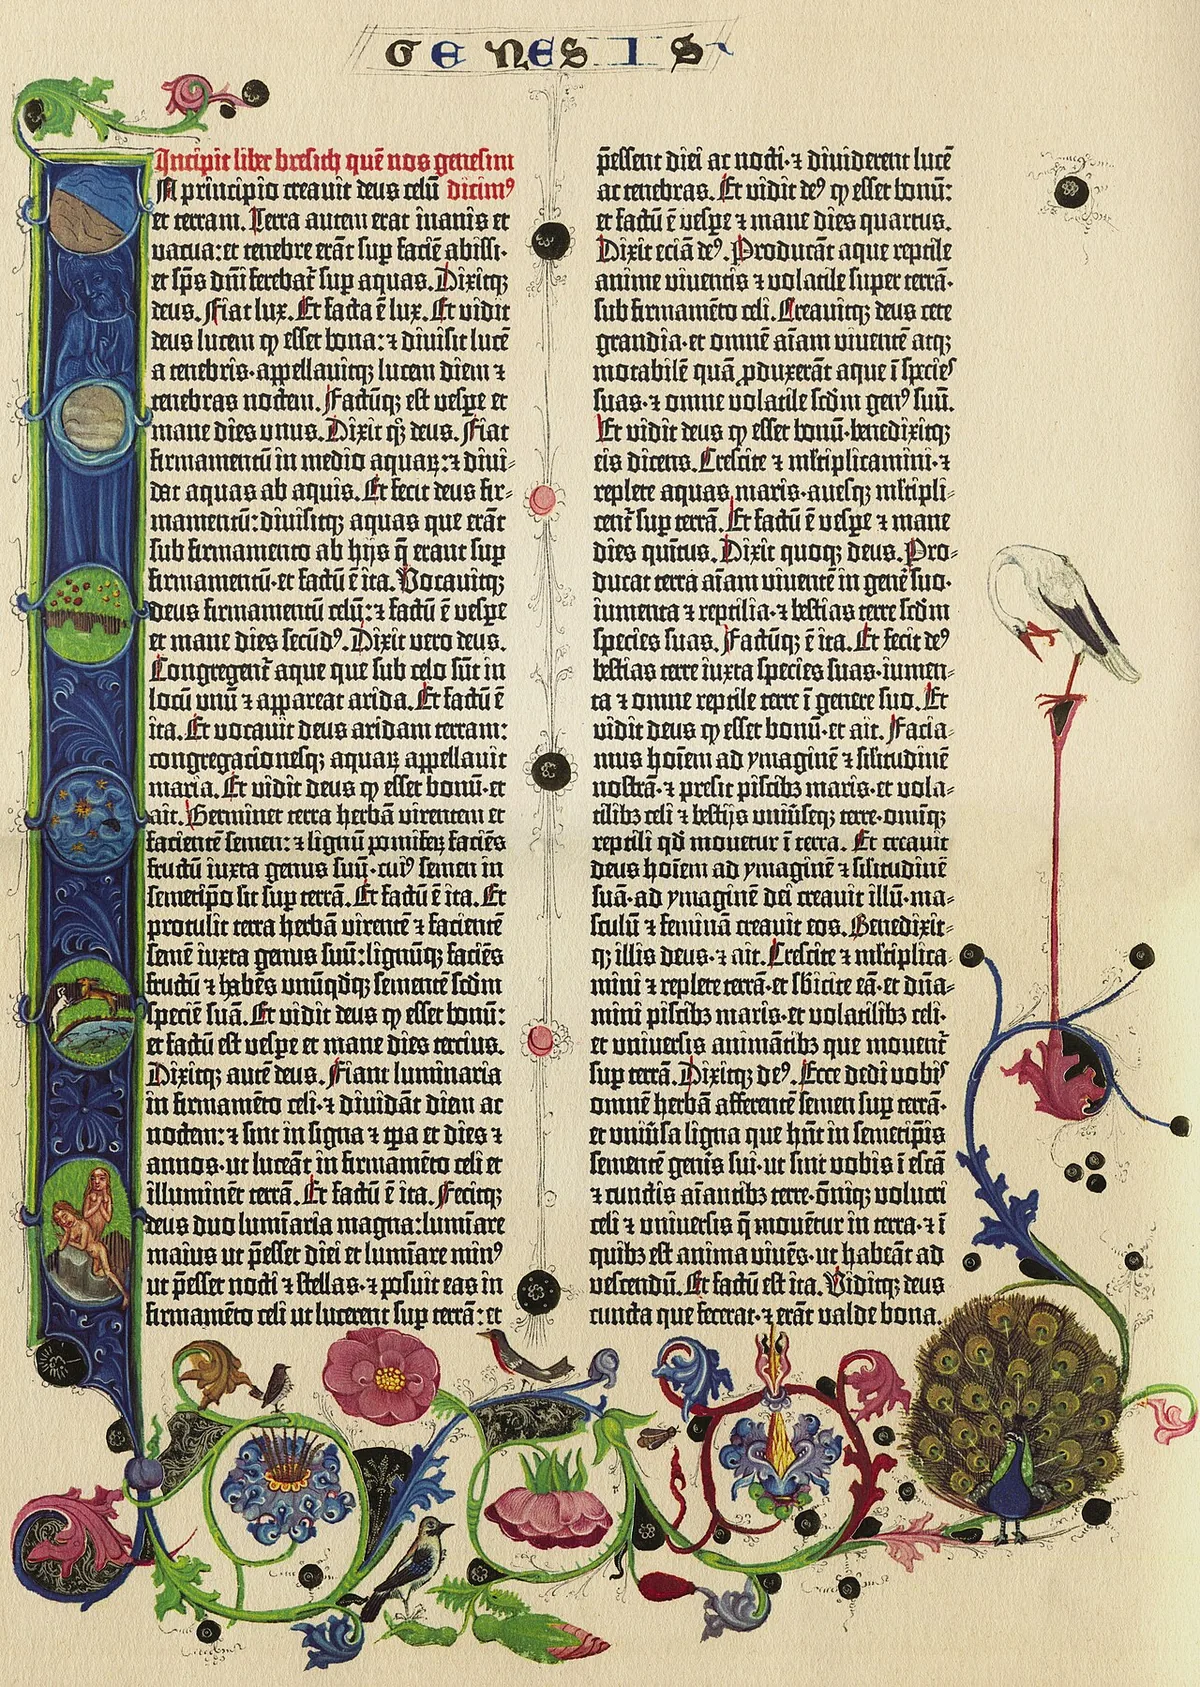 GENESIS
Incipit liber bresith quē nos genesim
N principio creavit deus celū dicimꝰ
et terram. Terra autem erat inanis et
vacua: et tenebre erāt sup faciē abissi·
et sp̄s dn̄i ferebat᷑ sup aquas. Dixitqꝫ
deus. Fiat lux. Et facta ē lux. Et vidit
deus lucem ꝙ esset bona: ⁊ divisit lucē
a tenebris· appellavitqꝫ lucem diem ⁊
tenebras noctem. Factūqꝫ est vespe et
mane dies unus. Dixit qꝫ deus. Fiat
firmamentū in medio aquaꝝ: ⁊ divi-
dat aquas ab aquis. Et fecit deus fir-
mamentū: divisitqꝫ aquas que erāt
sub firmamento ab hijs q̄ erant sup
firmamentū· et factū ē ita. Vocavitqꝫ
deus firmamentū celū: ⁊ factū ē vespe
et mane dies secūdꝰ. Dixit vero deus.
Congregent᷑ aque que sub celo sūt in
locū unū ⁊ appareat arida. Et factū ē
ita. Et vocavit deus aridam terram:
congregacionesqꝫ aquaꝝ appellavit
maria. Et vidit deus ꝙ esset bonū· et
ait. Germinet terra herbā virentem et
facientē semen: ⁊ lignū pomifeꝝ faciēs
fructū iuxta genus suū· cuiꝰ semen in
semetip̄o sit sup terrā. Et factū ē ita. Et
protulit terra herbā virentē ⁊ facientē
semē iuxta genus suū: lignūqꝫ faciēs
fructū ⁊ habēs unūqdqꝫ sementē scdm
speciē suā. Et vidit deus ꝙ esset bonū:
et factū est vespe et mane dies tercius.
Dixitqꝫ autē deus. Fiant luminaria
in firmamēto celi· ⁊ dividāt diem ac
noctem: ⁊ sint in signa ⁊ tp̄a et dies ⁊
annos· ut luceāt in firmamēto celi et
illuminēt terrā. Et factū ē ita. Fecitqꝫ
deus duo lumīaria magna: lumīare
maius ut p̄esset diei et lumīare minꝰ
ut p̄esset nocti ⁊ stellas· ⁊ posuit eas in
firmamēto celi ut lucerent sup terrā: et
p̄essent diei ac nocti· ⁊ dividerent lucē
ac tenebras. Et vidit deꝰ ꝙ esset bonū:
et factū ē vespe ⁊ mane dies quartus.
Dixit eciā deꝰ. Producāt aque reptile
anime viventis ⁊ volatile super terrā·
sub firmamēto celi. Creavitqꝫ deus cete
grandia· et omnē aīam viventē atqꝫ
motabilē quā ꝓduxerāt aque ī species
suas· ⁊ omne volatile scdm genꝰ suū.
Et vidit deus ꝙ esset bonū· benedixitqꝫ
eis dicens. Crescite ⁊ mltiplicamini· ⁊
replete aquas maris· avesqꝫ mltipli-
cent᷑ sup terrā. Et factū ē vespe ⁊ mane
dies quītus. Dixit quoqꝫ deus. Pro-
ducat terra aīam viventē in genē suo·
iumenta ⁊ reptilia· ⁊ bestias terre scdm
species suas. Factūqꝫ ē ita. Et fecit deꝰ
bestias terre iuxta species suas· iumen-
ta ⁊ omne reptile terre ī genere suo. Et
vidit deus ꝙ esset bonū· et ait. Facia-
mus hoīem ad ymaginē ⁊ silitudinē
nostrā· ⁊ presit piscibꝫ maris· et vola-
tilibꝫ celi ⁊ bestijs univ̄seqꝫ terre· omīqꝫ
reptili qd̄ movetur ī terra. Et creavit
deus hoīem ad ymaginē ⁊ silitudinē
suā· ad ymaginē dei creavit illū· ma-
sculū ⁊ feminā creavit eos. Benedixit-
qꝫ illis deus· ⁊ ait. Crescite ⁊ mltiplica-
mini ⁊ replete terrā· et sbicite eā· et dn̄a-
mini piscibꝫ maris· et volatilibꝫ celi·
et universis animātibꝫ que movent᷑
sup terrā. Dixitqꝫ deꝰ. Ecce dedi vobis
omnē herbā afferentē semen sup terrā·
et univ̄sa ligna que hn̄t in semetip̄is
sementē genīs sui· ut sint vobis ī escā
⁊ cunctis aīantibꝫ terre· ōniqꝫ volucri
celi ⁊ universis q̄ movētur in terra· ⁊ ī
quibꝫ est anima vivēs· ut habeāt ad
vescendū. Et factū est ita. Viditqꝫ deus
cuncta que fecerat· ⁊ erāt valde bona.